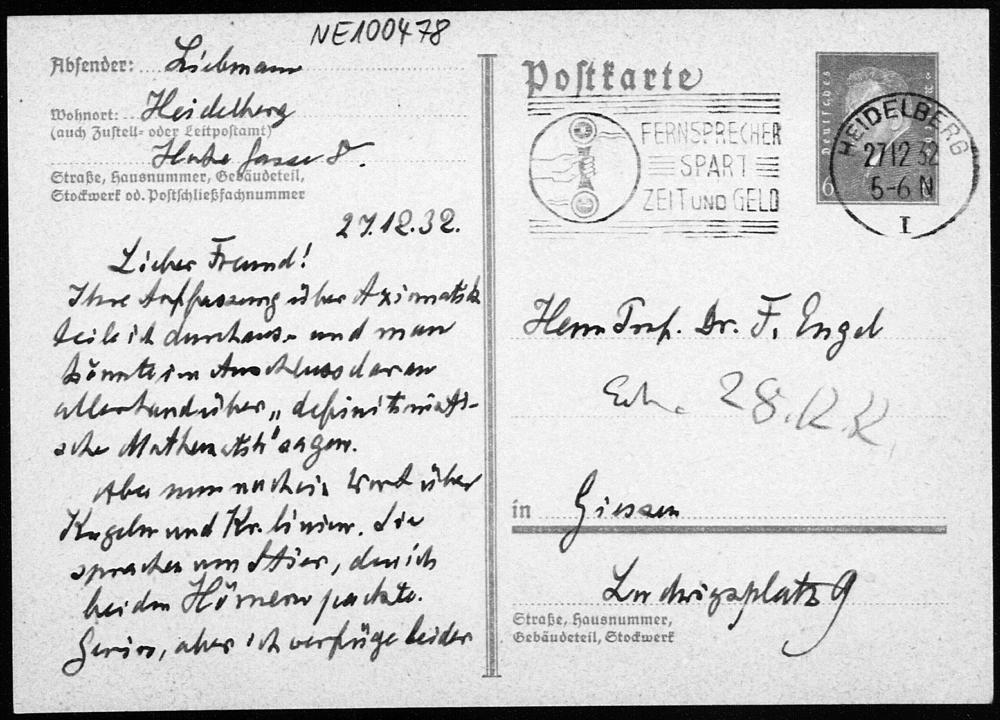 NE100478
Absender: Liebmann
Wohnort: Heidelberg
(auch Zustell- oder Leitpostamt)
Straße, Hausnummer, Gebäudeteil,
Stockwerk od. Postschließfachnummer
27.12.32.
Lieber Freund!
Ihre Auffassung über Axiomatik
teile ich durchaus und man
könnte im Anschluss daran
allerhand über „definitmati-
sche Mathematik" sagen.
Aber nun noch ein Wort über
Kugeln und Kr. linien. Sie
sprachen vom Stier, den ich
bei den Hörnern packte.
Gewiss, aber ich verfüge leider
Postkarte
FERNSPRECHER
SPART
ZEIT UND GELD
Deutsches Reich
6
HEIDELBERG
27 12 32
5-6 N
I
Herrn Prof. Dr. F. Engel
28.12.32.
in Giessen
Ludwigsplatz 9
Straße, Hausnummer,
Gebäudeteil, Stockwerk